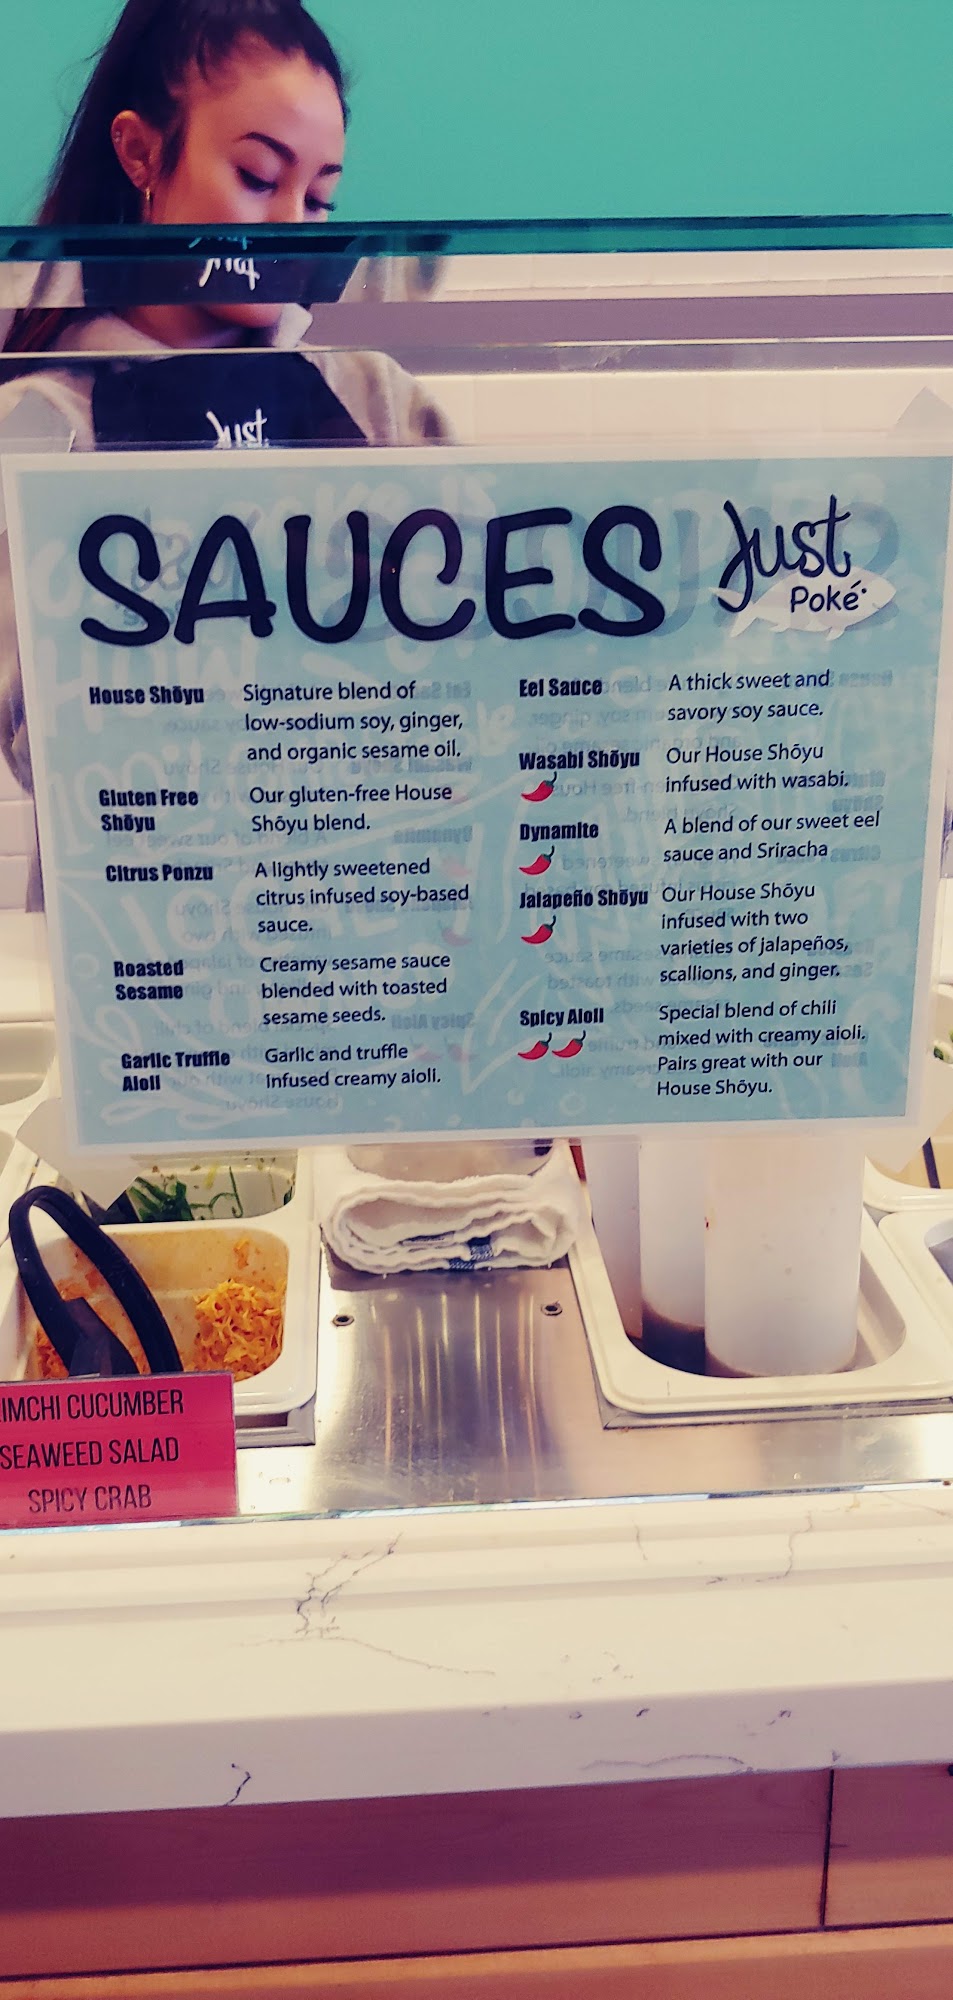 Just
SAUCES
Just
Poké
House Shōyu
Signature blend of
low-sodium soy, ginger,
and organic sesame oil.
Gluten Free
Shōyu
Our gluten-free House
Shōyu blend.
Citrus Ponzu
A lightly sweetened
citrus infused soy-based
sauce.
Roasted
Sesame
Creamy sesame sauce
blended with toasted
sesame seeds.
Garlic Truffle
Aioli
Garlic and truffle
Infused creamy aioli.
Eel Sauce
A thick sweet and
savory soy sauce.
Wasabi Shōyu
Our House Shōyu
infused with wasabi.
Dynamite
A blend of our sweet eel
sauce and Sriracha
Jalapeño Shōyu
Our House Shōyu
infused with two
varieties of jalapeños,
scallions, and ginger.
Spicy Aioli
Special blend of chili
mixed with creamy aioli.
Pairs great with our
House Shōyu.
IMCHI CUCUMBER
SEAWEED SALAD
SPICY CRAB